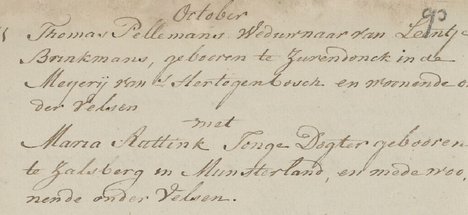 October
93
Thomas Pellemans Weduwnaar van Leentje
Brinkmans, gebooren te Zurendonck in de
Meyerij van 's Hertogenbosch en woonende on
der Velsen
met
Maria Rattink Jonge Dogter gebooren
te Zalsberg in Munsterland, en mede woo
nende onder Velsen.